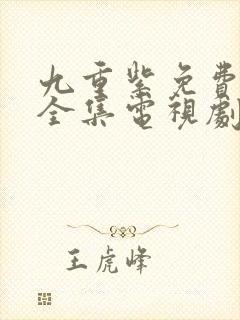 九重紫免費
全集電視劇
王虎峰